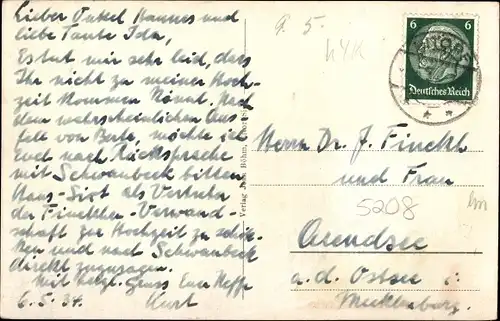 Lieber Onkel Hannes und
liebe Tante Ida,
Es tut mir sehr leid, dass
Ihr nicht zu meiner Hoch-
zeit kommen könnt. Nach
dem wahrscheinlichen Aus-
fall von Berta, möchte ich
Euch nach Rücksprache
mit Schwanbeck bitten
Haus- als Vertreter
der Finckh'schen Verwand-
schaft zur Hochzeit zu schik-
ken und nach Schwanbeck
direkt zuzusagen.
Mit Gruss Euer Neffe
6.5.34. Kurt
Verlag Böhm,
9. 5.
6 6
Deutsches Reich
Herrn Dr. J. Finckh
und Frau
5208
Arendsee
a. d. Ostsee i.
Mecklenburg.